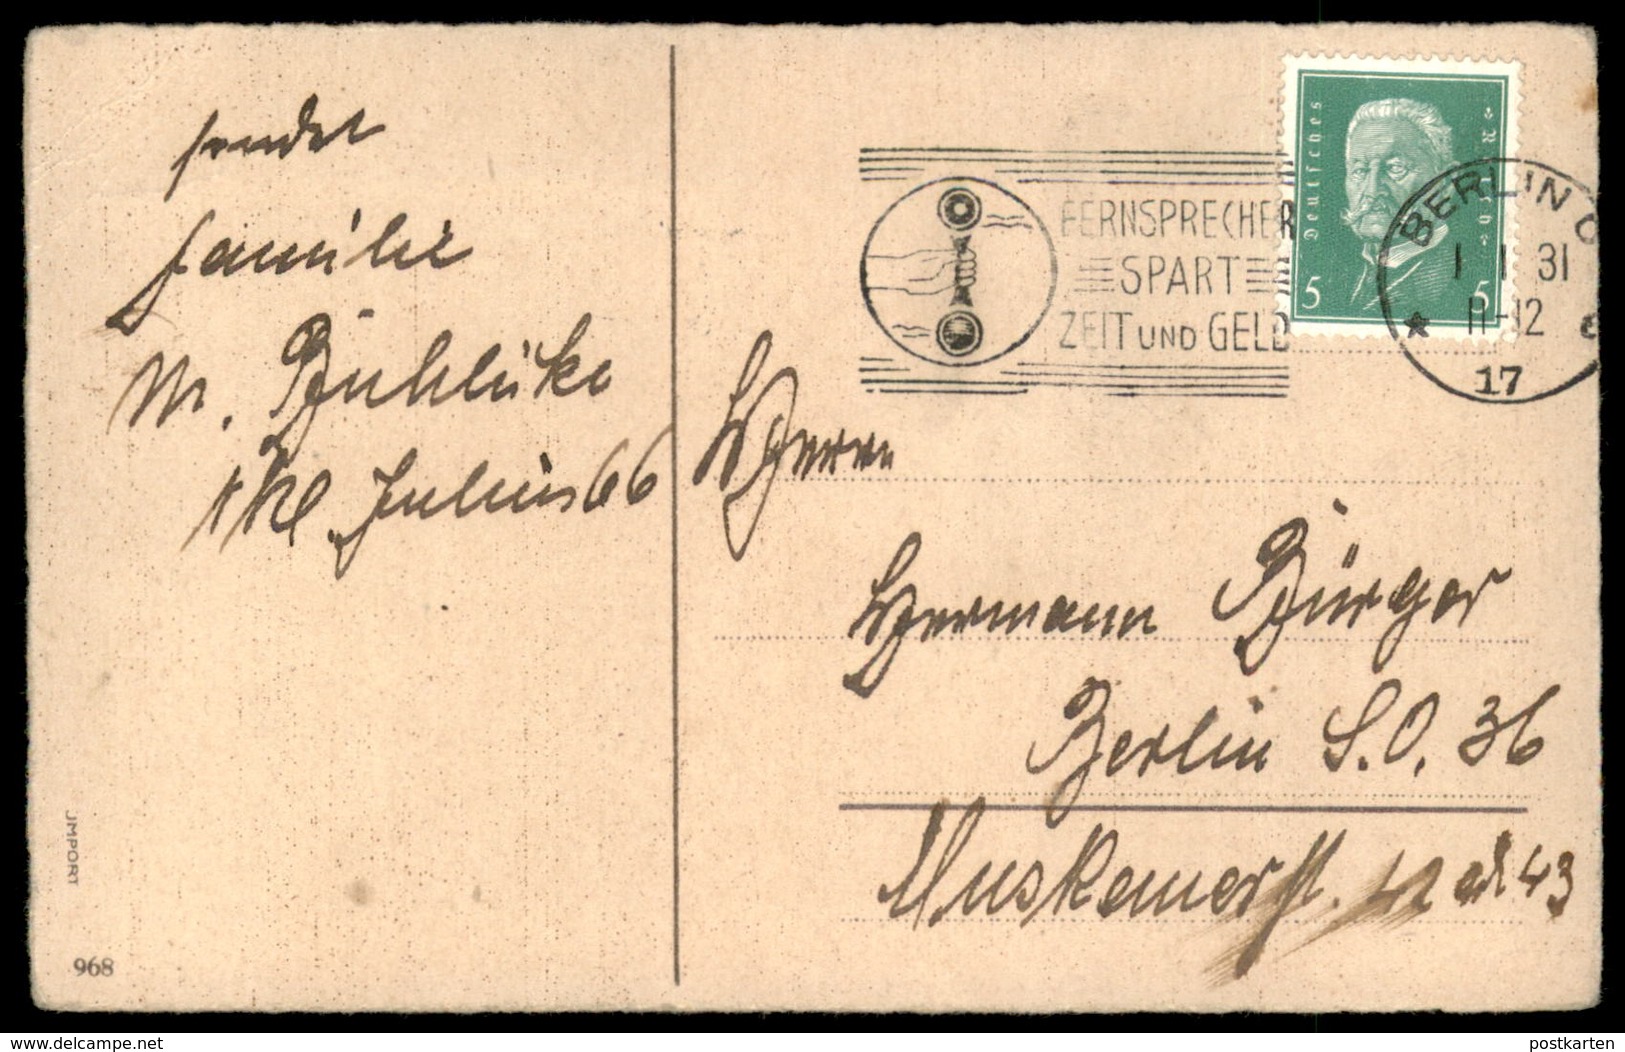 sendet
Familie
M.
Julius 66
JMPORT
968
FERNSPRECHER
SPART
ZEIT UND GELD
Deutsches Reich
5 5
BERLIN C
1 1 31
11-12
17
Herrn
Hermann Bürger
Berlin S.O. 36
Muskauerst. 42 od 43
www.delcampe.net
postkarten